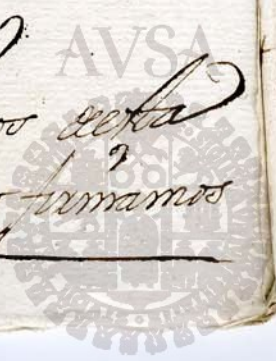 AVSA
os desta
firmamos